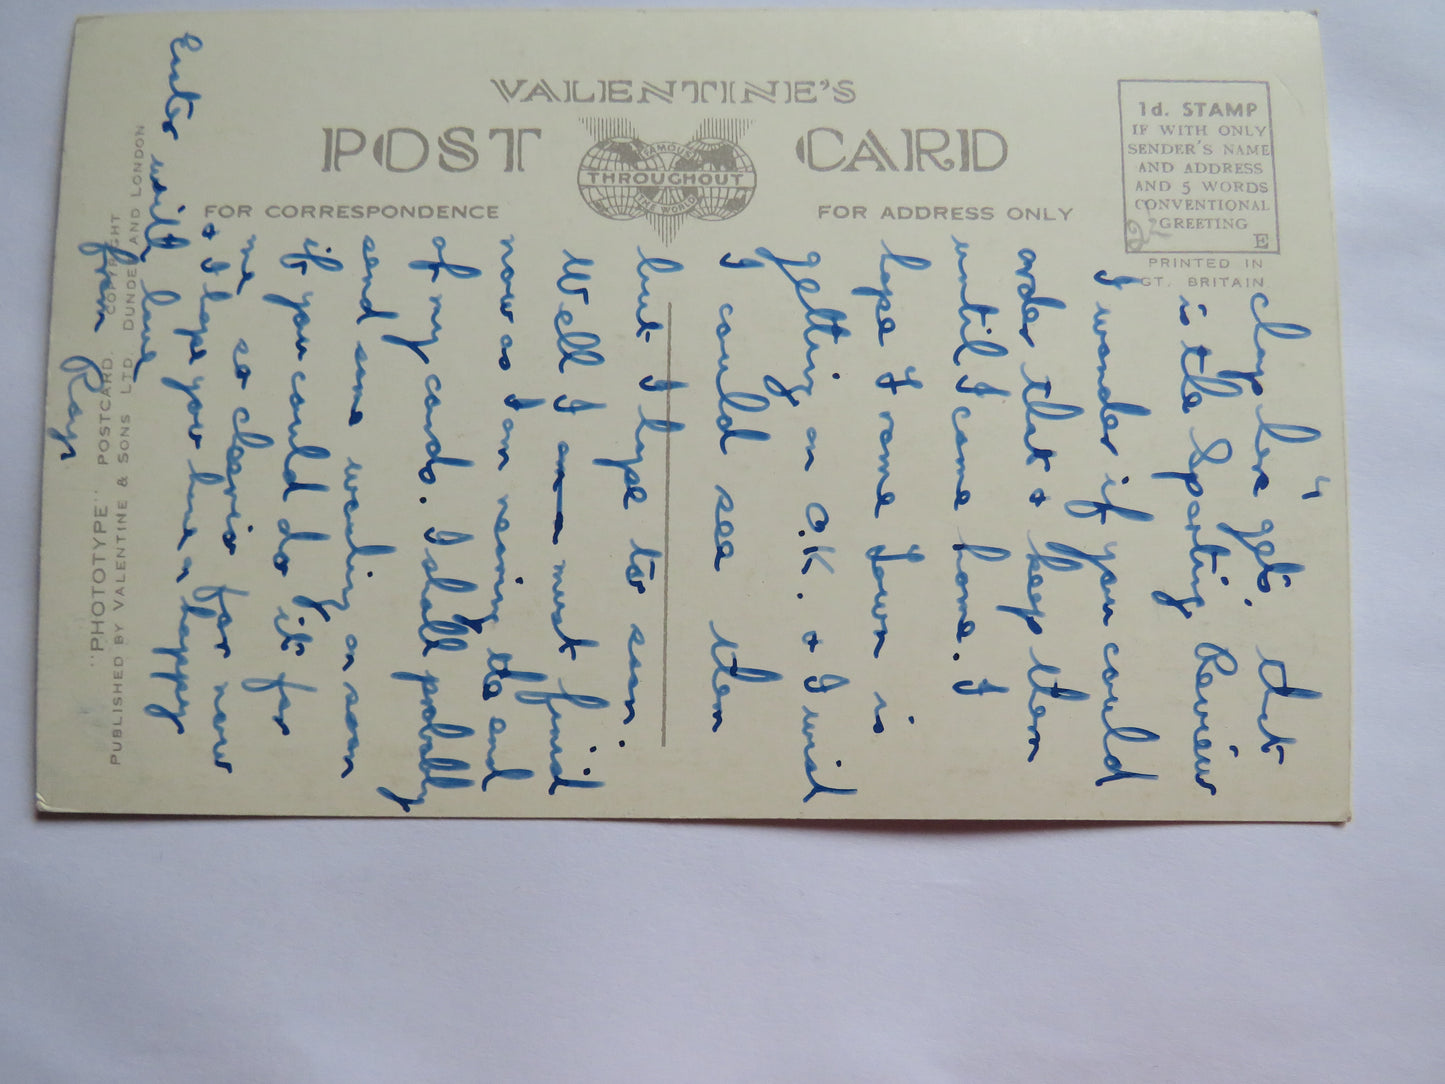 VALENTINE'S
POST CARD
FAMOUS
THROUGHOUT
THE WORLD
FOR CORRESPONDENCE
FOR ADDRESS ONLY
1d. STAMP
IF WITH ONLY
SENDER'S NAME
AND ADDRESS
AND 5 WORDS
CONVENTIONAL
GREETING
E
PRINTED IN
GT. BRITAIN
"PHOTOTYPE" POSTCARD. COPYRIGHT
PUBLISHED BY VALENTINE & SONS LTD. DUNDEE AND LONDON
4
chap here gets. that
is the Sporting Review
I wonder if you could
order that & keep them
until I come home. I
hope Frome Town is
getting on O.K. & I wish
I could see them
but I hope to soon.
Well I must finish
now as I am nearing the end
of my cards. I shall probably
send some washing on soon
if you could do it for
me so cheerio for now
& I hope you have a happy
Easter with love
from Ray